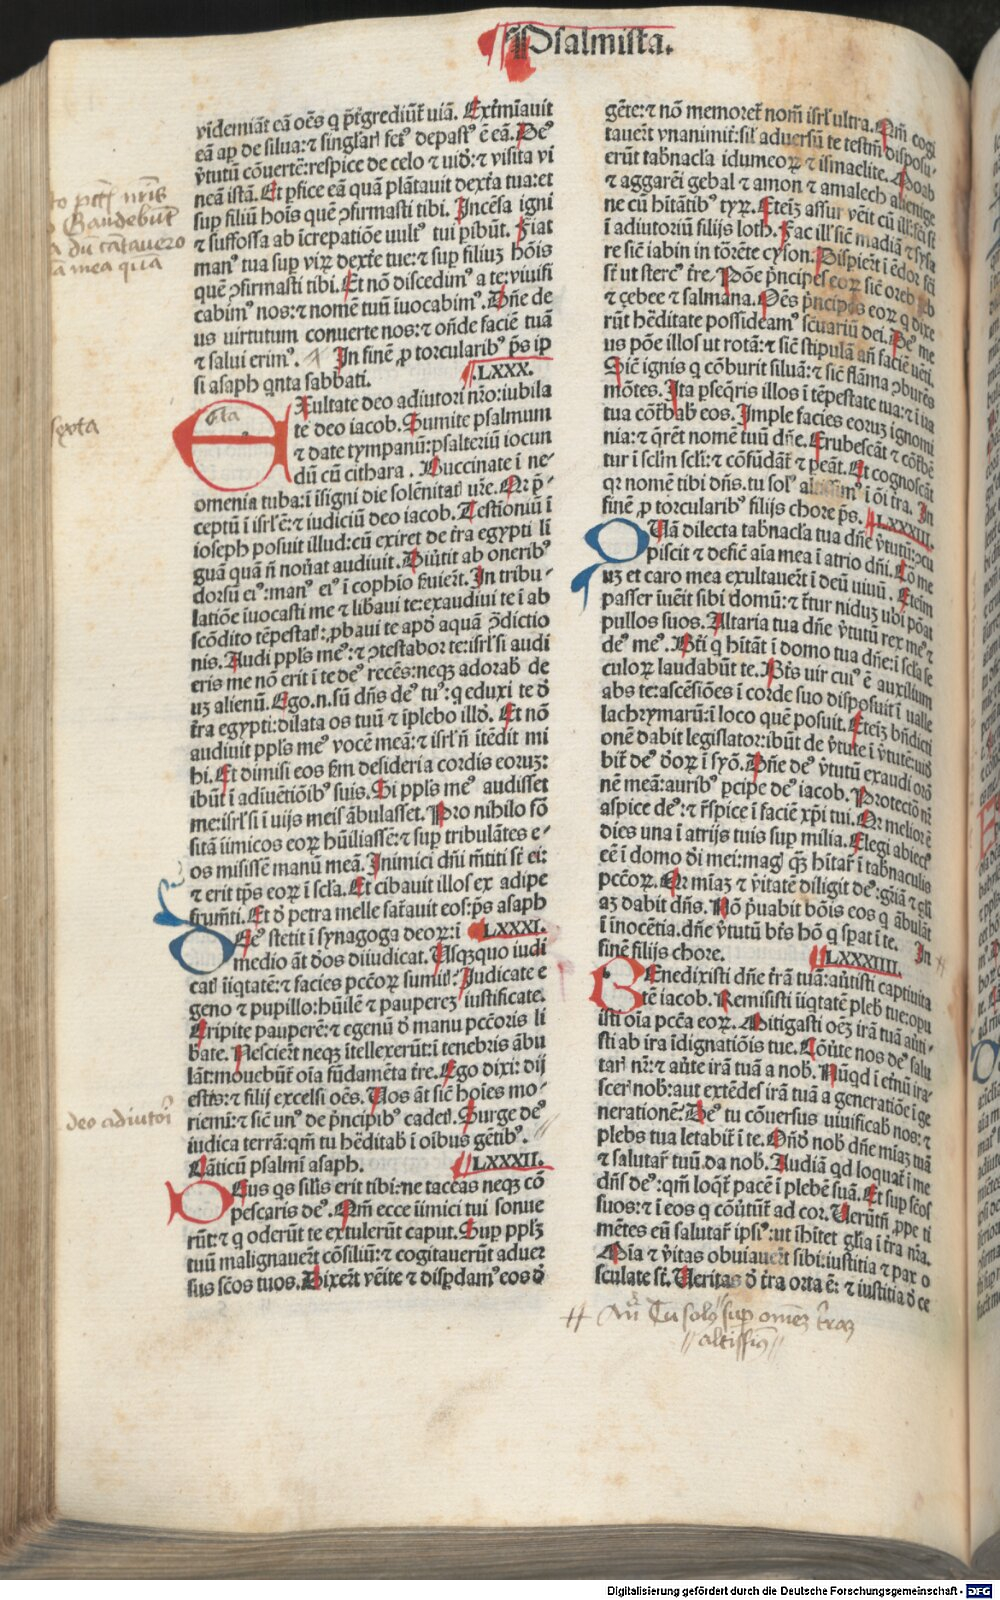 Psalmista.
videmiãt eã oẽs q p̃tgrediũt̃ uiã. Ext̃miauit
eã ap de silua: ⁊ singl̃ari fer⁹ depast⁹ ẽ eã. De⁹
v̓tutũ cõuertẽ: respice de celo ⁊ uid̃: ⁊ visita vi
neã istã. Et p̱fice eã quã plãtauit dext̃a tua: et
sup filiũ hoĩs quẽ ↄfirmasti tibi. Incẽsa igni
⁊ suffossa ab ĩcrepatiõe uult⁹ tui p̱ibũt. Fiat
man⁹ tua sup virꝫ dext̃e tue: ⁊ sup filiuꝫ hõis
quẽ ↄfirmasti tibi. Et nõ discedim⁹ a te: viuifi
cabim⁹ nos: ⁊ nomẽ tuũ ĩuocabim⁹. Dñe de
us virtutum conuerte nos: ⁊ oñde faciẽ tuã
⁊ salui erim⁹. In finẽ ꝓ torcularib⁹ p̃s ip
si asaph qnta sabbati. LXXX.
Exultate deo adiutori nr̃o: iubila
te deo iacob. Sumite psalmum
⁊ date tympanũ: psalteriũ iocun
dũ cũ cithara. Buccinate ĩ ne-
omenia tuba: ĩ ĩsigni die solẽnitat̃ ur̃e. Qr p̃-
ceptũ ĩ isrl̃ ẽ: ⁊ iudiciũ deo iacob. Testioniũ ĩ
ioseph posuit illud: cũ exiret de t̃ra egypti li
guã quã ñ nou̓at audiuit. Diu̓tit ab onerib⁹
dorsũ ei⁹: man⁹ ei⁹ ĩ cophio s̃uier̃t. In tribu-
latiõe ĩuocasti me ⁊ lib̃aui te: exaudiui te ĩ ab
scõdito tẽpestat̃: ꝓbaui te apd̃ aquã ↄ̃dictio
nis. Audi ppl̃s me⁹: ⁊ ↄtestabor te: isrl̃ si audi
eris me nõ erit ĩ te de⁹ recẽs: neqꝫ adorab̃ de
uꝫ alienũ. Ego.n.sũ dñs de⁹ tu⁹: q eduxi te d̃
t̃ra egypti: dilata os tuũ ⁊ ĩplebo illd̃. Et nõ
audiuit ppl̃s me⁹ vocẽ meã: ⁊ isrl̃ ñ ĩtẽdit mi
hi. Et dimisi eos fm̃ desideria cordis eoruꝫ:
ibũt ĩ adiuẽtiõib⁹ suis. Si ppl̃s me⁹ audisset
me: isrl̃ si ĩ uijs meis ãbulasset. Pro nihilo fõ
sitã ĩimicos eoꝝ hũiliassẽ: ⁊ sup tribulãtes e-
os misissẽ manũ meã. Inimici dñi m̃titi st̃ ei:
⁊ erit tp̃s eoꝝ ĩ scl̃a. Et cibauit illos ex adipe
frum̃ti. Et d̃ petra melle sat̃auit eos: p̃s asaph
De⁹ stetit ĩ synagoga deoꝝ: ĩ LXXXI.
medio ãt d̃os diiudicat. Usqꝫquo iudi
cat̃ ĩiq̃tatẽ: ⁊ facies pcc̃oꝝ sumit̃. Iudicate e
geno ⁊ pupillo: hũilẽ ⁊ pauperez iustificate.
Eripite pauperẽ: ⁊ egenũ d̃ manu pcc̃oris li
bate. Nescier̃t neqꝫ ĩtellexerũt: ĩ tenebris ãbu
lãt: mouebũt̃ oĩa fũdamẽta t̃re. Ego dixi: dij
estis: ⁊ filij excelsi oẽs. Uos ãt sic̃ hoĩes mo-
riemi: ⁊ sic̃ un⁹ de p̃ncipib⁹ cadet̃. Surge de⁹
iudica terrã: qm̃ tu hẽditab̃ ĩ oĩbus gẽtib⁹.
Cãticũ psalmi asaph. LXXXII.
Deus qs sil̃is erit tibi: ne taceas neqꝫ cõ
pescaris de⁹. Qm̃ ecce ĩimici tui sonue
rũt: ⁊ q oderũt te extulerũt caput. Sup pplꝫ
tuũ malignauer̃t cõsiliũ: ⁊ cogitauerũt aduer
sus sc̃os tuos. Dixer̃t veĩte ⁊ disp̱dam⁹ eos d̃
gẽte: ⁊ nõ memoret̃ nom̃ isrl̃ ultra. Qm̃ cogi
tauer̃t vnanimit̃: sil̃ adversũ te testm̃ disposu-
erũt tab̃nacl̃a idumeoꝝ ⁊ ismaelite. Moab
⁊ aggarẽi gebal ⁊ amon ⁊ amalech alienige
ne cũ hĩtãtib⁹ tyꝝ. Eteĩꝫ assur vẽit cũ ill̃: fc̃i st̃
ĩ adiutoriũ filijs loth. Fac ill̃ sic̃ madiã ⁊ sysa
re sic̃ iabin ĩ tõrẽte cyson. Disp̱ier̃t ĩ ẽdor fc̃i
st̃ ut sterc⁹ t̃re. Põe p̃ncipes eoꝝ sic̃ oreb ⁊ zeb
⁊ çebee ⁊ salmana. Oẽs p̃ncipes eoꝝ q dixe
rũt hẽditate possideam⁹ sc̃uariũ dei. De⁹ me
us põe illos ut rotã: ⁊ sic̃ stipulã añ faciẽ uẽti.
Sic̃ ignis q cõburit siluã: ⁊ sic̃ flãma ↄburẽs
mõtes. Ita p̱seq̃ris illos ĩ tẽpestate tua: ⁊ ĩ ira
tua cõt̃bab̃ eos. Imple facies eoruꝫ ignomi
nia: ⁊ q̃rẽt nomẽ tuũ dñe. Erubescãt ⁊ cõt̃bẽ
tur ĩ scl̃m scl̃i: ⁊ cõfũdãt̃ ⁊ p̱eãt. Et cognoscãt
qr nomẽ tibi dñs. tu sol⁹ altissim⁹ ĩ oĩ t̃ra. In
finẽ ꝓ torcularib⁹ filijs chore p̃s. LXXXIII.
Quã dilecta tab̃nacl̃a tua dñe v̓tutũ: ↄcu
piscit ⁊ deficẽ aĩa mea ĩ atrio dñi. Cõ me
uꝫ et caro mea exultauer̃t ĩ deũ uiuũ. Eteim
passer ĩuẽit sibi domũ: ⁊ t̃tur niduꝫ ubi põat
pullos suos. Altaria tua dñe v̓tutũ rex me⁹ ⁊
de⁹ me⁹. Bt̃i q hĩtãt ĩ domo tua dñe: ĩ scl̃a se
culoꝝ laudabũt te. Bt̃s uir cui⁹ ẽ auxilium
abs te: ascẽsiões ĩ corde suo disposuit ĩ ualle
lachrymarũ: ĩ loco quẽ posuit. Eteiꝫ bñdicti
onẽ dabit legislator: ibũt de v̓tute ĩ v̓tutẽ: uid̃
bit̃ de⁹ d̃oꝝ ĩ syõ. Dñe de⁹ v̓tutũ exaudi orõ
nẽ meã: aurib⁹ p̱cipe de⁹ iacob. Protector nr̃
aspice de⁹: ⁊ r̃spice ĩ faciẽ xp̃i tui. Qr melior ẽ
dies una ĩ atrijs tuis sup milia. Elegi abiect⁹
eẽ ĩ domo d̃i mei: mag̃ q̃ꝫ hĩtar̃ ĩ tab̃naculis
pcc̃oꝝ. Qr mĩaꝫ ⁊ v̓itatẽ diligit de⁹: gr̃iã ⁊ gl̃i
aꝫ dabit dñs. Nõ p̃uabit bõis eos q ãbulãt
ĩ inocẽtia. dñe v̓tutũ bt̃s hõ q sp̱at ĩ te. In
finẽ filijs chore. LXXXIIII.
Benedixisti dñe t̃rã tuã: au̓tisti captiuita
tẽ iacob. Remisisti ĩiq̃tatẽ pleb̃ tue: opu
isti oĩa pcc̃a eoꝝ. Mitigasti oẽꝫ irã tuã au̓ti-
sti ab ira ĩdignatiõis tue. Cõu̓te nos de⁹ salu
tari nr̃: ⁊ au̓te irã tuã a nob̃. Nũqd ĩ et̃nũ ira-
scer̃ nob̃: aut extẽdes irã tuã a generatiõe ĩ ge
nerationẽ? De⁹ tu cõuersus uiuificab̃ nos: ⁊
plebs tua letabit̃ ĩ te. Oñd̃ nob̃ dñe mĩaꝫ tuã
⁊ salutar̃ tuũ da nob̃. Audiã qd loquat̃ ĩ me
dñs de⁹: qm̃ loq̃t̃ pacẽ ĩ plebẽ suã. Et sup sc̃os
suos: ⁊ ĩ eos q cõu̓tũt̃ ad cor. Uerũtñ ꝓpe ti
mẽtes eũ salutar̃ ipsi⁹: ut ĩhĩtet gl̃ia ĩ t̃ra nr̃a.
Mĩa ⁊ v̓itas obuiauer̃t sibi: iustitia ⁊ pax o
sculate st̃. Ueritas d̃ t̃ra orta ẽ: ⁊ iustitia d̃ ce
Gaudebũt
a mea quia
sexta
deo adiutori
Añ Tu solus sup omẽꝫ t̃raꝫ
altissim⁹
Digitalisierung gefördert durch die Deutsche Forschungsgemeinschaft - DFG